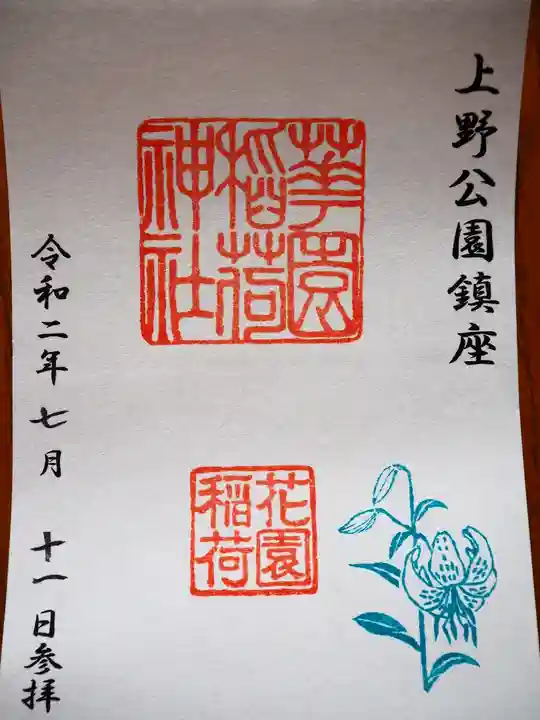 上野公園鎮座
華園
稲荷
神社
花園
稲荷
令和二年七月 十一日参拝